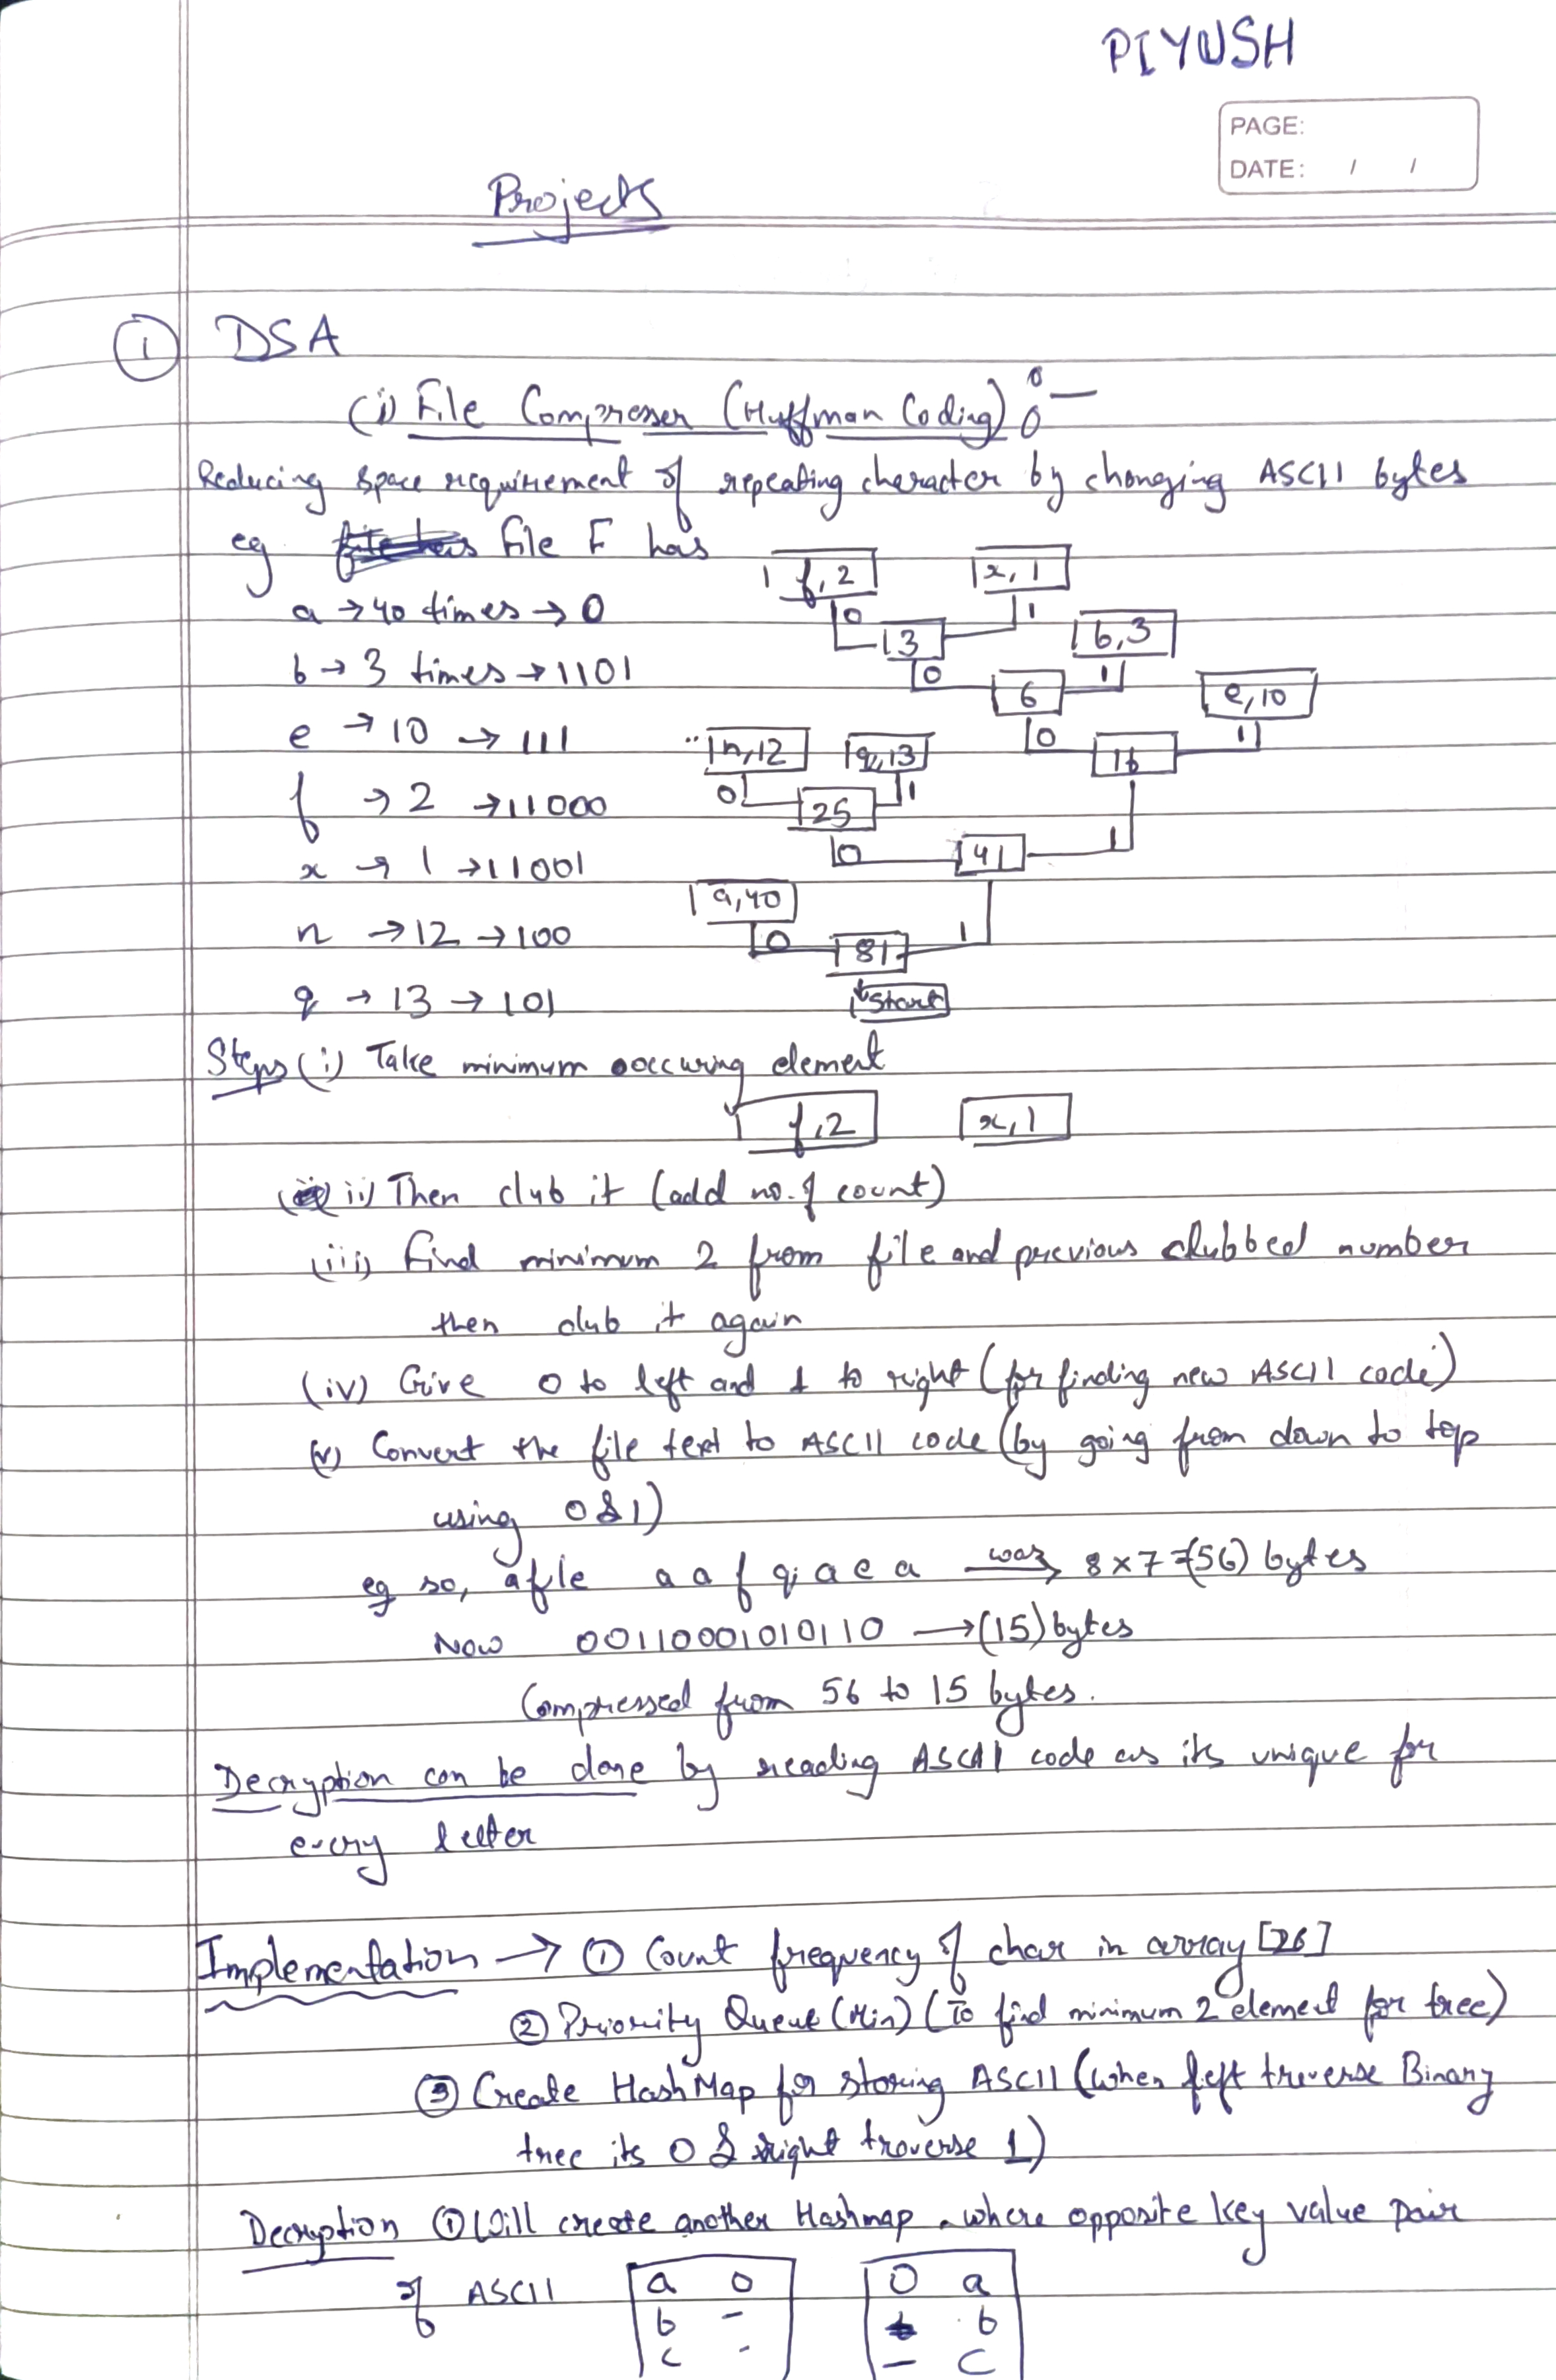 PIYUSH
PAGE:
DATE: / /
Projects
① DSA
(i) File Compresser (Huffman Coding) :-
Reducing space requirement of repeating cheracter by changing ASCII bytes
eg file F has
f,2 x,1
a → 40 times → 0
0 1
3 b,3
b → 3 times → 1101
0 1
6 e,10
e → 10 → 111
n,12 q,13 0 1
16
f → 2 → 11000
0 1
25
0 41 1
x → 1 → 11001
a,40
n → 12 → 100
0 81 1
q → 13 → 101
Start
Steps (i) Take minimum occuring element
f,2 x,1
ii) Then club it (add no. of count)
(iii) find minimum 2 from file and previous clubbed number
then club it again
(iv) Give 0 to left and 1 to right (for finding new ASCII code)
(v) Convert the file text to ASCII code (by going from down to top
using 0 & 1)
eg so, a file a a f q a e a was → 8 x 7 = (56) bytes
Now 001100010101110 → (15) bytes
Compressed from 56 to 15 bytes.
Decryption can be done by reading ASCII code as its unique for
every letter
Implementation → ① Count frequency of char in array [26]
② Priority Queue (Min) (To find minimum 2 element for tree)
③ Create HashMap for storing ASCII (when left treverse Binary
tree its 0 & right traverse 1)
Decryption ① Will create another Hashmap where opposite key value pair
of ASCII a 0 0 a
b - b
c - - c